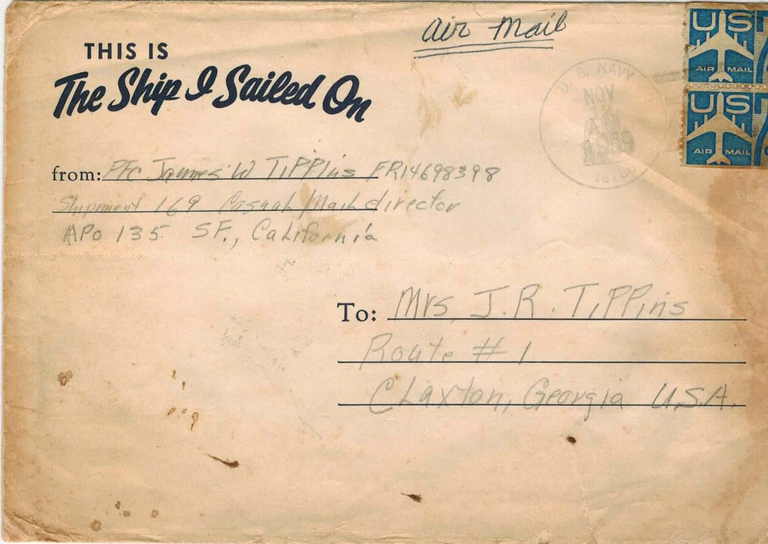 Air Mail
THIS IS
The Ship I Sailed On
U.S. NAVY
NOV
AM
1959
US
AIR MAIL
US
AIR MAIL
from: Pfc James W Tippins ER14698398
Shipment 169 Casual Mail director
APO 135 SF., California
To: Mrs. J. R. Tippins
Route # 1
Claxton, Georgia U.S.A.